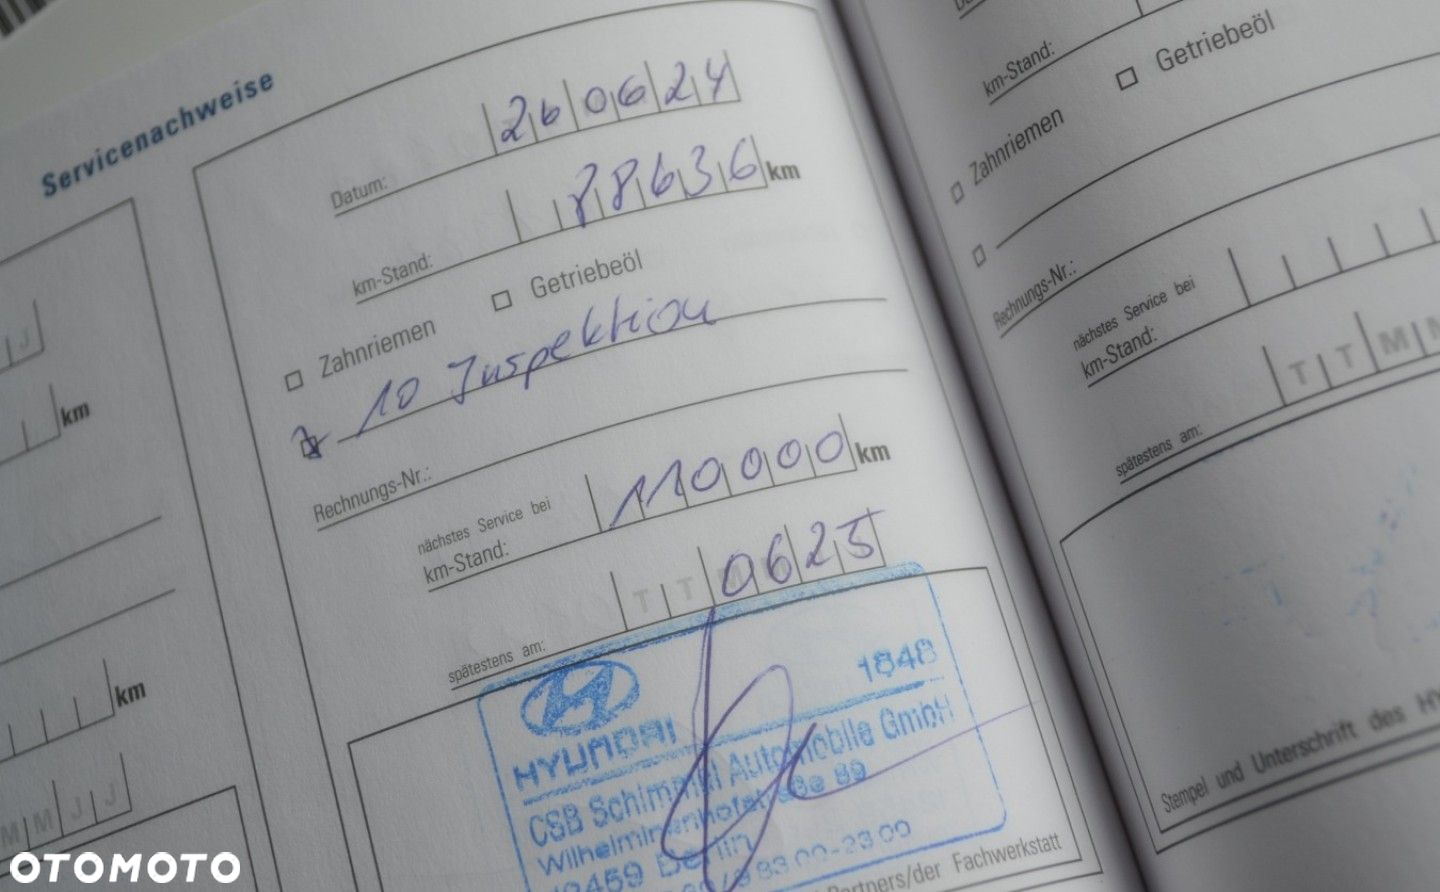 Servicenachweise
Datum: 260624
km-Stand: 88636 km
Zahnriemen
Getriebeöl
10 Inspektion
Rechnungs-Nr.:
nächstes Service bei
km-Stand: 110000 km
spätestens am: T T 0625
HYUNDAI 1848
CSB Schimmel Automobile GmbH
Wilhelminenhofstraße 89
Berlin
Partners/der Fachwerkstatt
J
km
km
M M J J
km-Stand:
Getriebeöl
Zahnriemen
Rechnungs-Nr.:
nächstes Service bei
km-Stand:
T T M
spätestens am:
Stempel und Unterschrift des HY
OTOMOTO